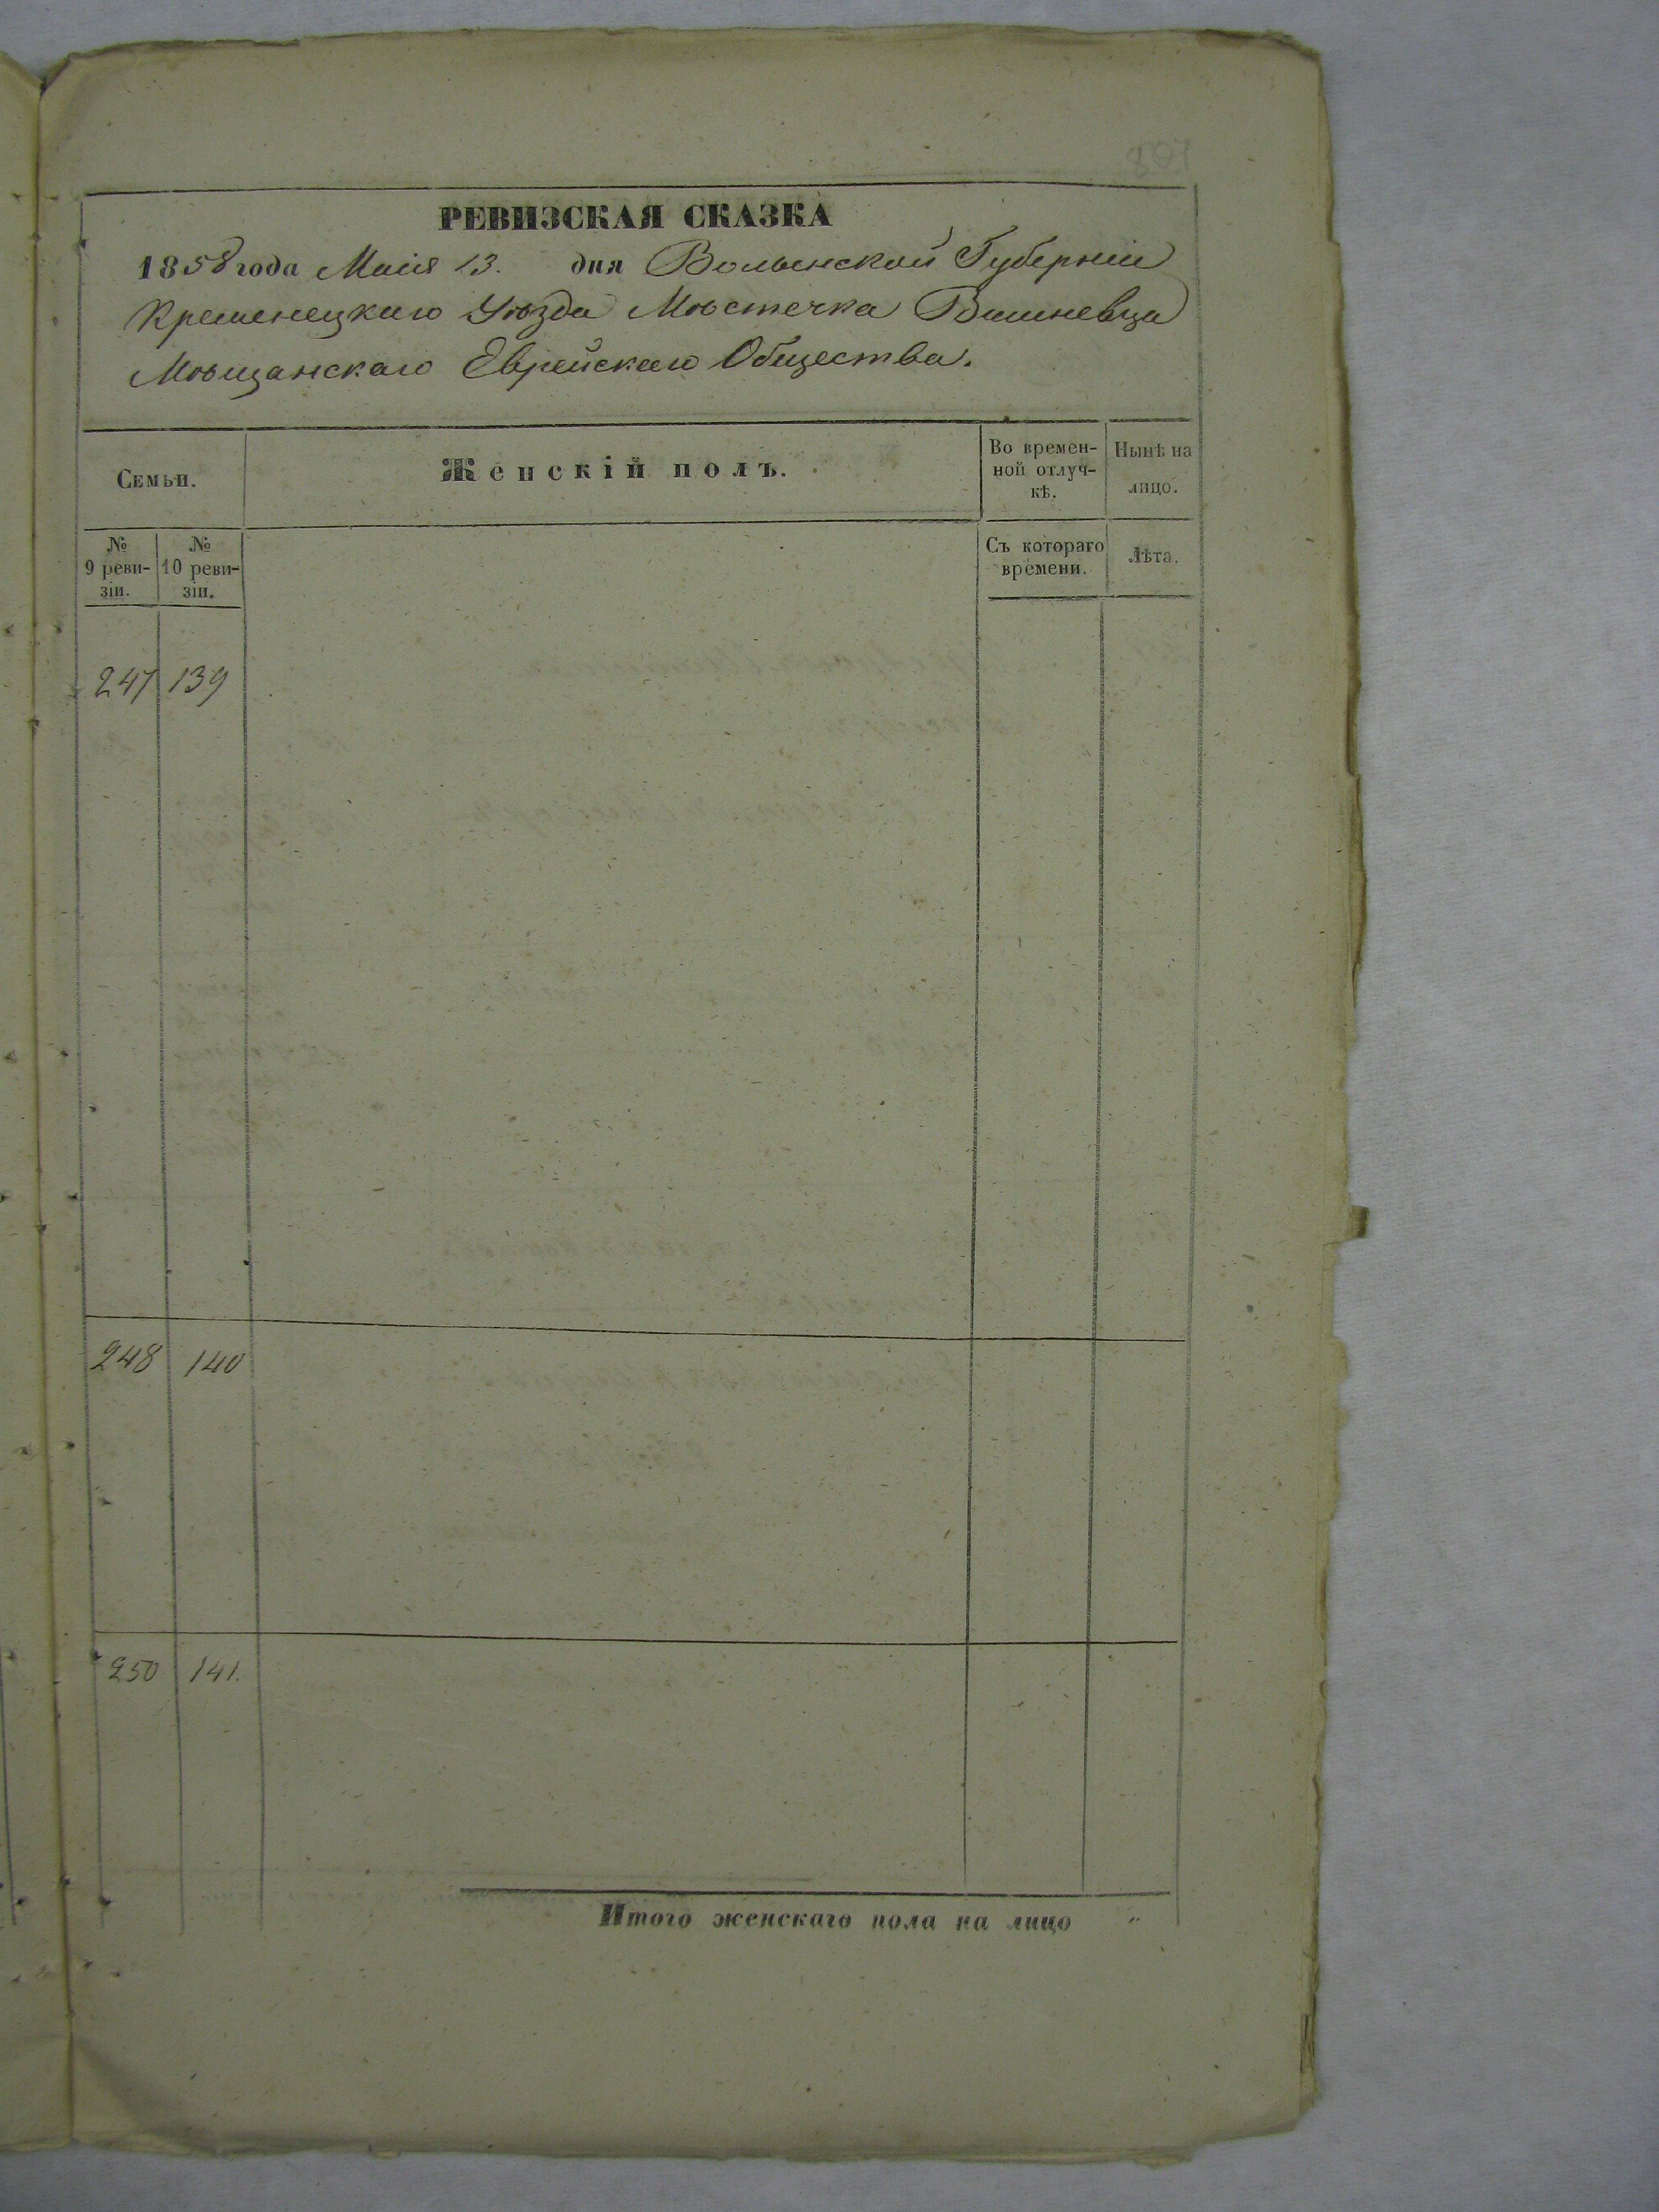 РЕВИЗСКАЯ СКАЗКА
1858 года Маія 13. дня Волынской Губерніи
Кременецкаго Уѣзда Мѣстечка Вишневца
Мѣщанскаго Еврейскаго Общества.
Семьи.
Женскій полъ.
Во времен-
ной отлуч-
кѣ.
Нынѣ на
лицо.
№
9 реви-
зіи.
№
10 реви-
зіи.
Съ котораго
времени.
Лѣта.
247 139
248 140
250 141.
Итого женскаго пола на лицо "